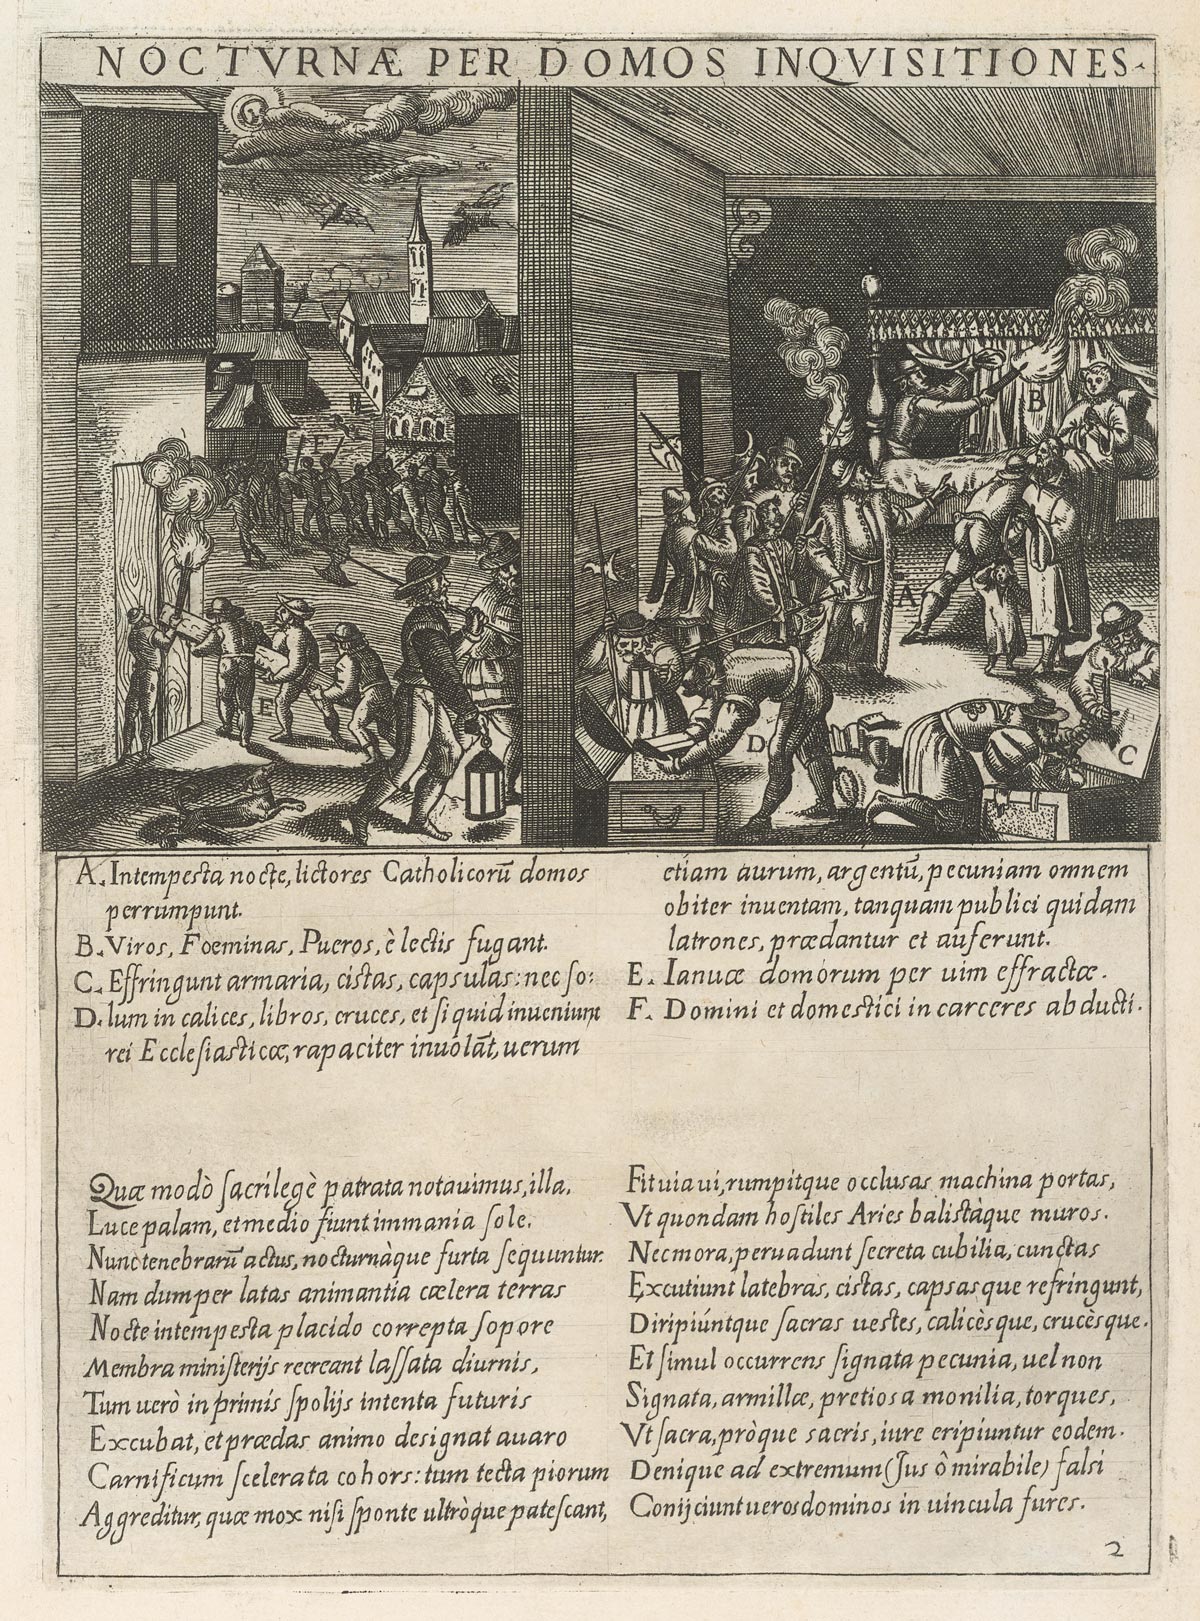 NOCTVRNÆ PER DOMOS INQVISITIONES.
F
B
A
E
D
C
A. Intempesta nocte, lictores Catholicorū domos
perrumpunt.
B. Viros, Foeminas, Pueros, è lectis fugant.
C. Effringunt armaria, cistas, capsulas: nec so:
D. lum in calices, libros, cruces, et si quid inueniunt
rei Ecclesiasticæ, rapaciter inuolāt, uerum
etiam aurum, argentū, pecuniam omnem
obiter inuentam, tanquam publici quidam
latrones, prædantur et auferunt.
E. Ianuæ domorum per uim effractæ.
F. Domini et domestici in carceres abducti.
Quæ modò sacrilegè patrata notauimus, illa,
Luce palam, et medio fiunt immania sole.
Nunc tenebrarū actus, nocturnàque furta sequuntur.
Nam dum per latas animantia cælera terras
Nocte intempesta placido correpta sopore
Membra ministerijs recreant lassata diurnis,
Tum uerò in primis spolijs intenta futuris
Excubat, et prædas animo designat auaro
Carnificum scelerata cohors: tum tecta piorum
Aggreditur, quæ mox nisi sponte ultròque patescant,
Fit uia ui, rumpitque occlusas machina portas,
Vt quondam hostiles Aries balistàque muros.
Nec mora, peruadunt secreta cubilia, cunctas
Excutiunt latebras, cistas, capsasque refringunt,
Diripiúntque sacras uestes, calicèsque, crucèsque.
Et simul occurrens signata pecunia, uel non
Signata, armillæ, pretiosa monilia, torques,
Vt sacra, pròque sacris, iure eripiuntur eodem.
Denique ad extremum (Jus ô mirabile) falsi
Conijciunt ueros dominos in uincula fures.
2